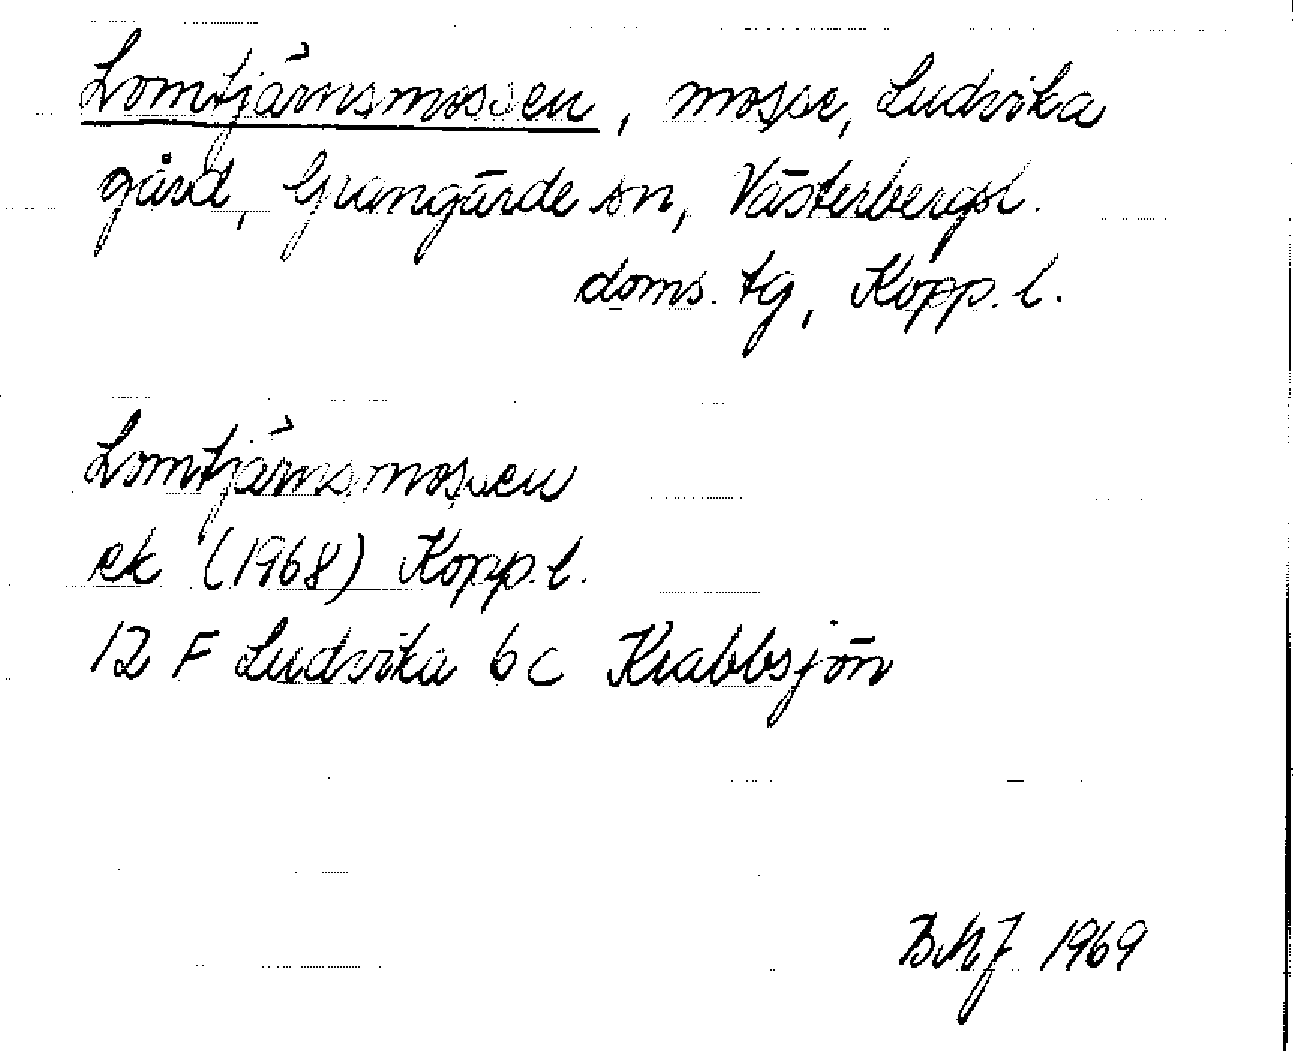 Lomtjärnsmossen, mosse, Ludvika
gård, Grangärde sn, Västerbergsl.
doms. tg, Kopp. l.
Lomtjärnsmossen
ek (1968) Kopp. l.
12 F Ludvika 6 c Krabbsjön
BMJ 1969